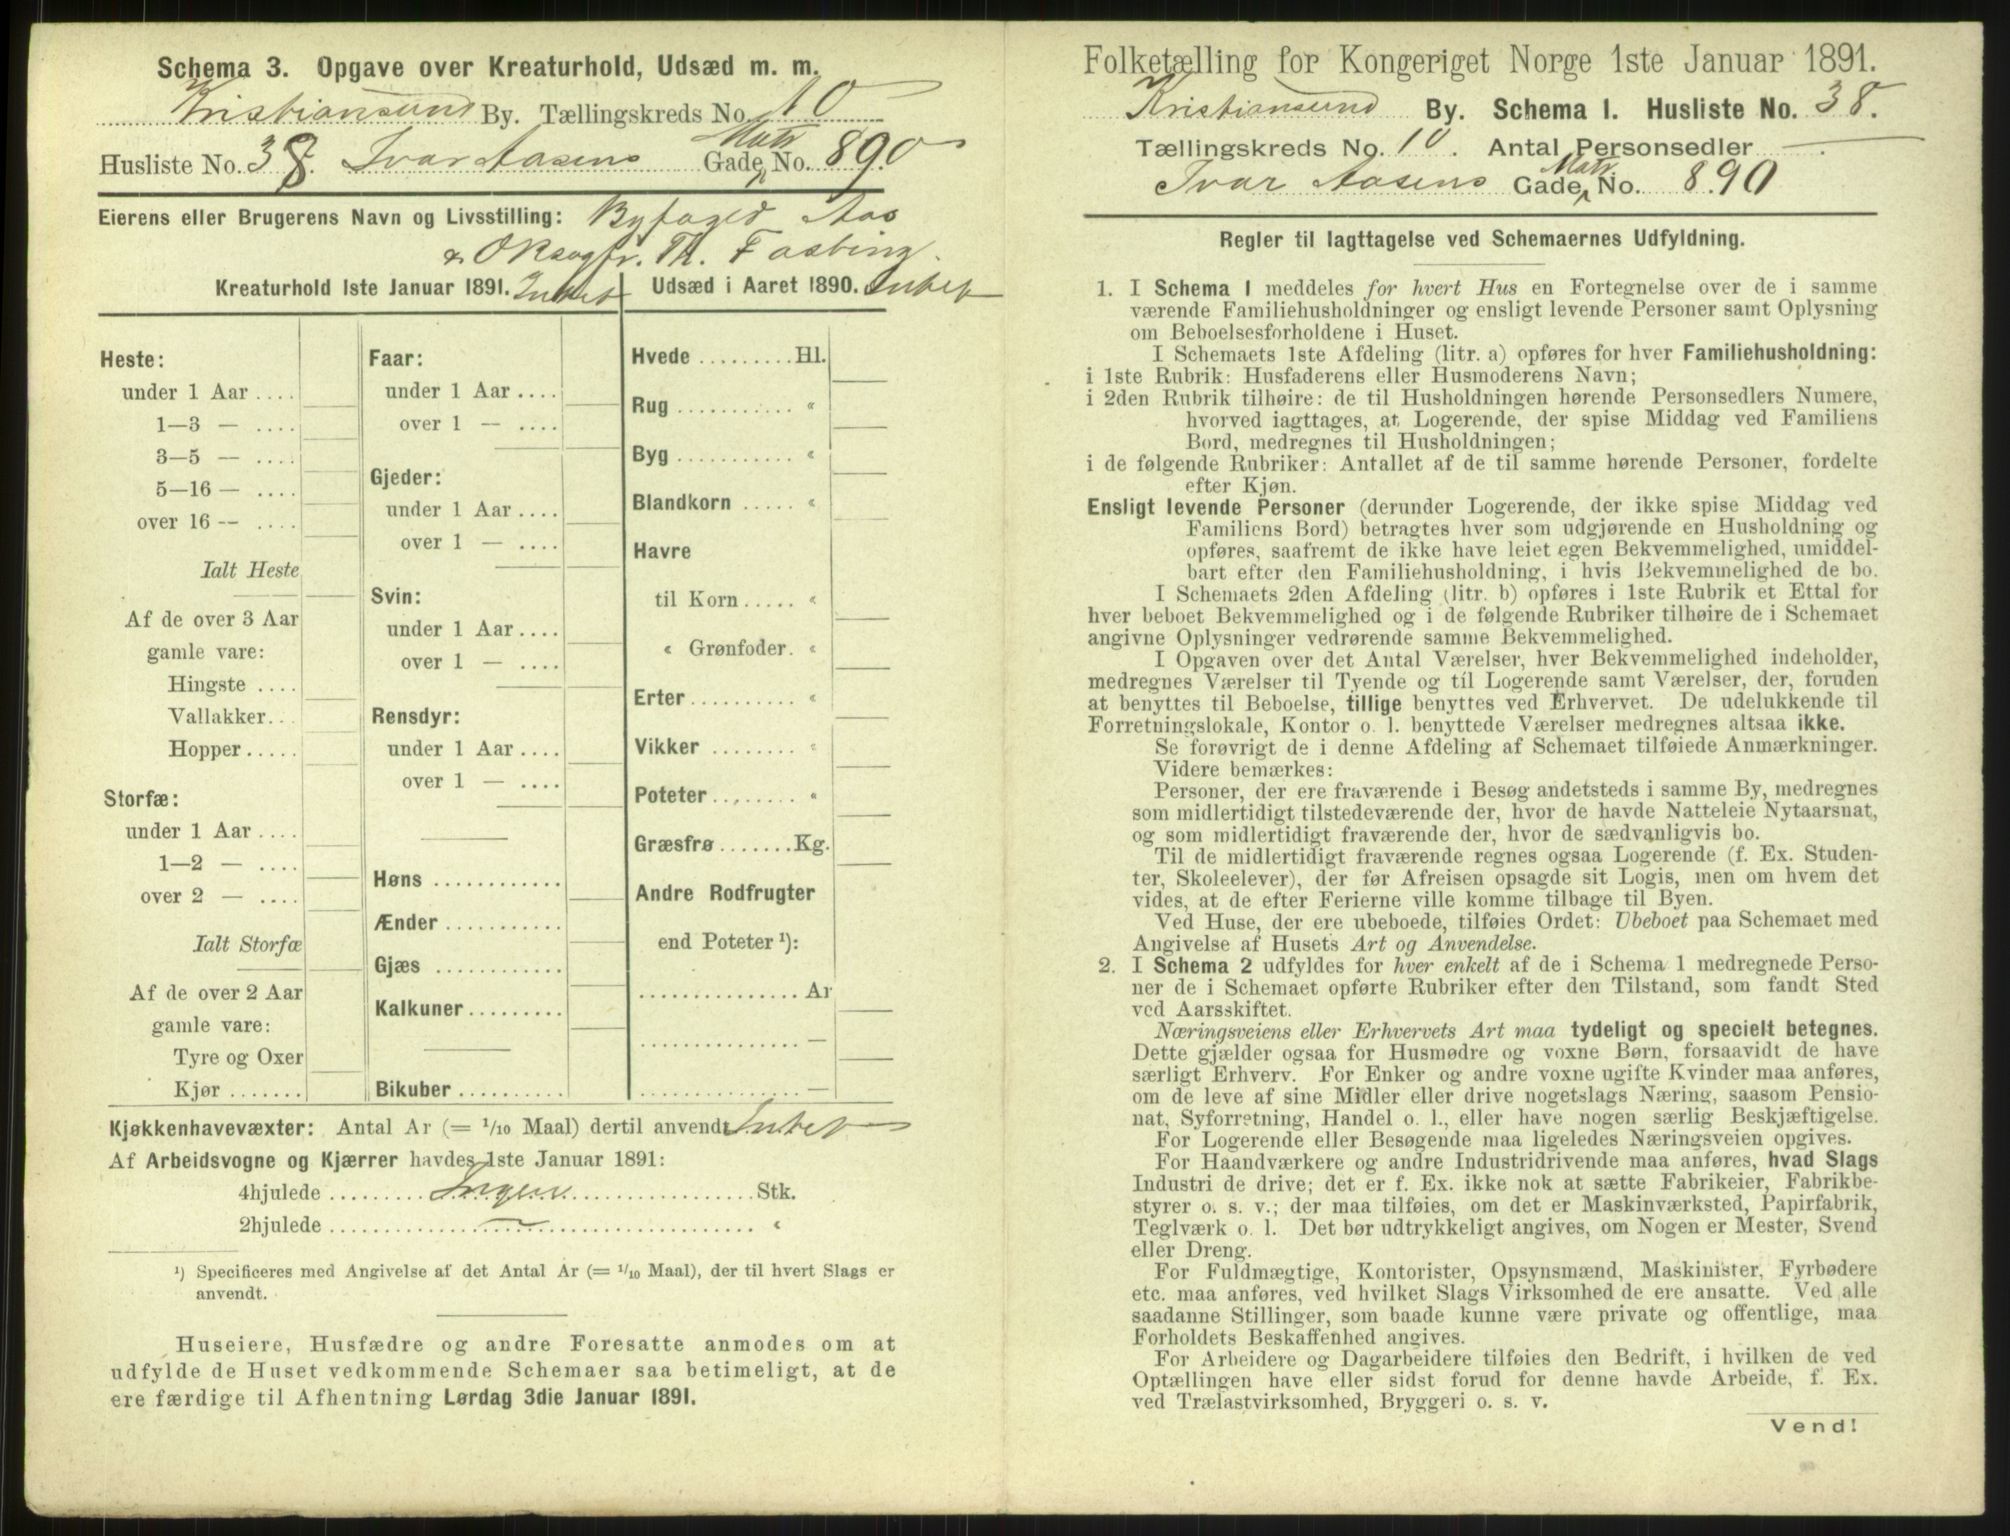 Schema 3. Opgave over Kreaturhold, Udsæd m. m.
Kristiansund By. Tællingskreds No. 10
Husliste No. 38. Ivar Aasens Gade, Matr No. 890
Eierens eller Brugerens Navn og Livsstilling: Byfoged Aas
& OKsagfr. Th. Fasting.
Kreaturhold 1ste Januar 1891. Intet
Heste:
under 1 Aar ....
1—3 — ....
3—5 — ....
5—16 — ....
over 16 — ....
Ialt Heste
Af de over 3 Aar
gamle vare:
Hingste ....
Vallakker...
Hopper.....
Storfæ:
under 1 Aar ....
1—2 — ....
over 2 — ....
Ialt Storfæ
Af de over 2 Aar
gamle vare:
Tyre og Oxer
Kjør .......
Faar:
under 1 Aar ....
over 1 — ....
Gjeder:
under 1 Aar ....
over 1 — ....
Svin:
under 1 Aar ....
over 1 — ....
Rensdyr:
under 1 Aar ....
over 1 — ....
Høns ............
Ænder ...........
Gjæs ............
Kalkuner.........
Bikuber ..........
Udsæd i Aaret 1890. Intet
Hvede .........Hl.
Rug ........... "
Byg ........... "
Blandkorn ..... "
Havre
til Korn..... "
" Grønfoder. "
Erter.......... "
Vikker ........ "
Poteter........ "
Græsfrø.......Kg.
Andre Rodfrugter
end Poteter ¹):
...............Ar
............... —
............... —
Kjøkkenhavevæxter: Antal Ar (= 1/10 Maal) dertil anvendt Intet
Af Arbeidsvogne og Kjærrer havdes 1ste Januar 1891:
4hjulede ......... Ingen ................. Stk.
2hjulede ......... — ................. "
¹) Specificeres med Angivelse af det Antal Ar (= 1/10 Maal), der til hvert Slags er
anvendt.
Huseiere, Husfædre og andre Foresatte anmodes om at
udfylde de Huset vedkommende Schemaer saa betimeligt, at de
ere færdige til Afhentning Lørdag 3die Januar 1891.
Folketælling for Kongeriget Norge 1ste Januar 1891.
Kristiansund By. Schema 1. Husliste No. 38.
Tællingskreds No. 10. Antal Personsedler — .
Ivar Aasens Gade, Matr No. 890
Regler til Iagttagelse ved Schemaernes Udfyldning.
1. I Schema 1 meddeles for hvert Hus en Fortegnelse over de i samme
værende Familiehusholdninger og ensligt levende Personer samt Oplysning
om Beboelsesforholdene i Huset.
I Schemaets 1ste Afdeling (litr. a) opføres for hver Familiehusholdning:
i 1ste Rubrik: Husfaderens eller Husmoderens Navn;
i 2den Rubrik tilhøire: de til Husholdningen hørende Personsedlers Numere,
hvorved iagttages, at Logerende, der spise Middag ved Familiens
Bord, medregnes til Husholdningen;
i de følgende Rubriker: Antallet af de til samme hørende Personer, fordelte
efter Kjøn.
Ensligt levende Personer (derunder Logerende, der ikke spise Middag ved
Familiens Bord) betragtes hver som udgjørende en Husholdning og
opføres, saafremt de ikke have leiet egen Bekvemmelighed, umiddel-
bart efter den Familiehusholdning, i hvis Bekvemmelighed de bo.
I Schemaets 2den Afdeling (litr. b) opføres i 1ste Rubrik et Ettal for
hver beboet Bekvemmelighed og i de følgende Rubriker tilhøire de i Schemaet
angivne Oplysninger vedrørende samme Bekvemmelighed.
I Opgaven over det Antal Værelser, hver Bekvemmelighed indeholder,
medregnes Værelser til Tyende og til Logerende samt Værelser, der, foruden
at benyttes til Beboelse, tillige benyttes ved Erhvervet. De udelukkende til
Forretningslokale, Kontor o. l. benyttede Værelser medregnes altsaa ikke.
Se forøvrigt de i denne Afdeling af Schemaet tilføiede Anmærkninger.
Videre bemærkes:
Personer, der ere fraværende i Besøg andetsteds i samme By, medregnes
som midlertidigt tilstedeværende der, hvor de havde Natteleie Nytaarsnat,
og som midlertidigt fraværende der, hvor de sædvanligvis bo.
Til de midlertidigt fraværende regnes ogsaa Logerende (f. Ex. Studen-
ter, Skoleelever), der før Afreisen opsagde sit Logis, men om hvem det
vides, at de efter Ferierne ville komme tilbage til Byen.
Ved Huse, der ere ubeboede, tilføies Ordet: Ubeboet paa Schemaet med
Angivelse af Husets Art og Anvendelse.
2. I Schema 2 udfyldes for hver enkelt af de i Schema 1 medregnede Perso-
ner de i Schemaet opførte Rubriker efter den Tilstand, som fandt Sted
ved Aarsskiftet.
Næringsveiens eller Erhvervets Art maa tydeligt og specielt betegnes.
Dette gjælder ogsaa for Husmødre og voxne Børn, forsaavidt de have
særligt Erhverv. For Enker og andre voxne ugifte Kvinder maa anføres,
om de leve af sine Midler eller drive nogetslags Næring, saasom Pensio-
nat, Syforretning, Handel o. l., eller have nogen særlig Beskjæftigelse.
For Logerende eller Besøgende maa ligeledes Næringsveien opgives.
For Haandværkere og andre Industridrivende maa anføres, hvad Slags
Industri de drive; det er f. Ex. ikke nok at sætte Fabrikeier, Fabrikbe-
styrer o. s. v.; der maa tilføies, om det er Maskinværksted, Papirfabrik,
Teglværk o. l. Det bør udtrykkeligt angives, om Nogen er Mester, Svend
eller Dreng.
For Fuldmægtige, Kontorister, Opsynsmænd, Maskinister, Fyrbødere
etc. maa anføres, ved hvilket Slags Virksomhed de ere ansatte. Ved alle
saadanne Stillinger, som baade kunne være private og offentlige, maa
Forholdets Beskaffenhed angives.
For Arbeidere og Dagarbeidere tilføies den Bedrift, i hvilken de ved
Optællingen have eller sidst forud for denne havde Arbeide, f. Ex.
ved Trælastvirksomhed, Bryggeri o. s. v.
Vend!